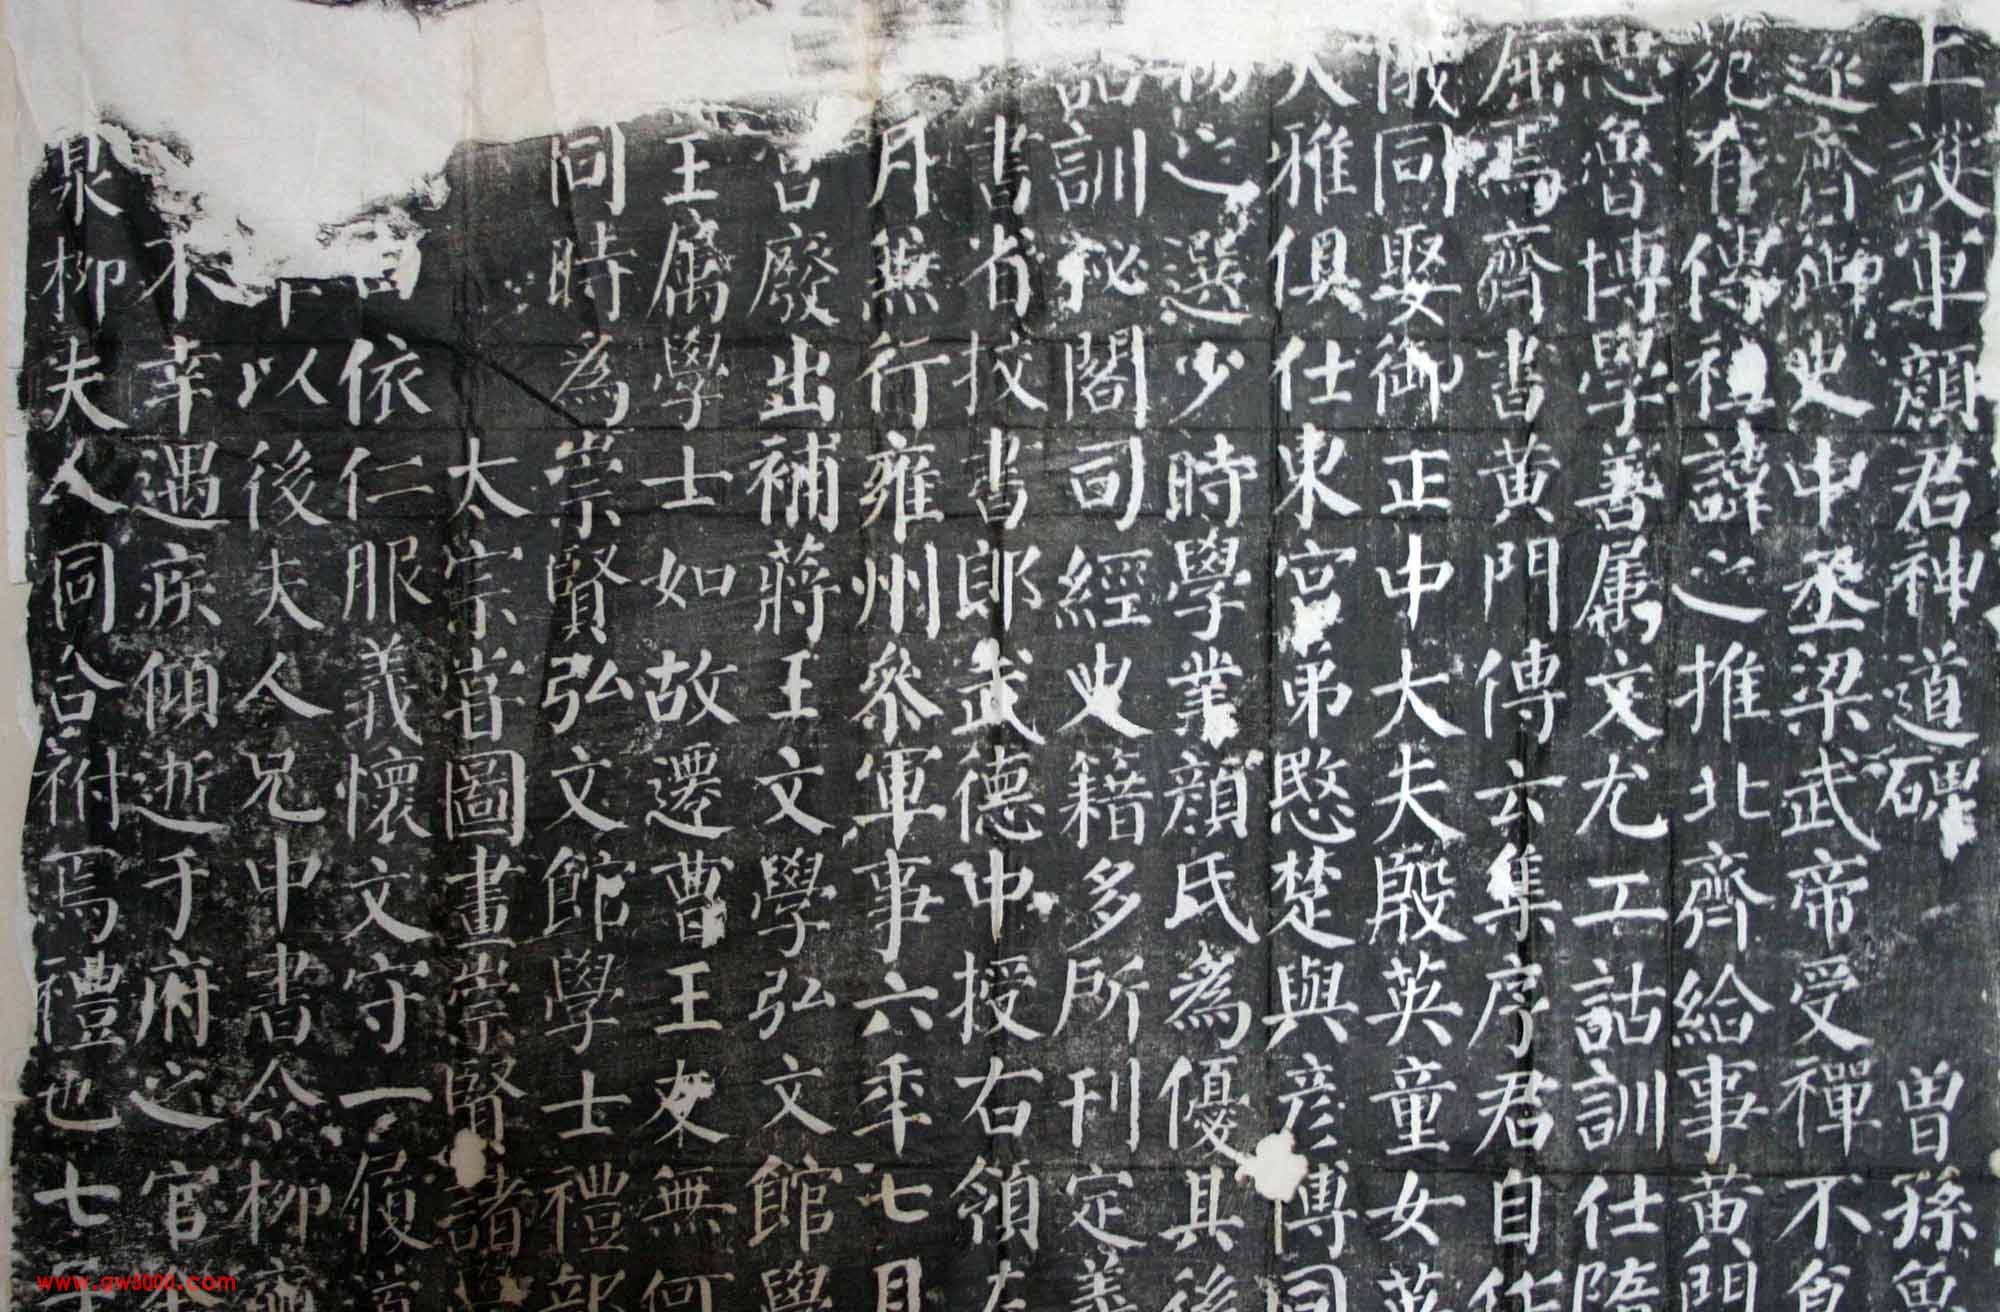 上護軍顏君神道碑 曾孫魯
逐齊御史中丞梁武帝受禪不食
宛有傳祖諱之推北齊給事黃門
忠魯博學善属文尤工詁訓仕隋
屈焉齊書黃門傳云集序君自作
俄同娶御正中大夫殷英童女英
人雅俱仕東宮弟愍楚與彥博同
物之選少時學業顏氏為優其後
詔訓秘閣司經史籍多所刊定義
書省挍書郎武德中授右領左
月無行雍州參軍事六年七月
宮廢出補蔣王文學弘文館學
王属學士如故遷曹王友無何
同時為崇賢弘文館學士禮部
太宗嘗圖畫崇賢諸
依仁服義懷文守一履道
以後夫人兄中書令柳奭
不幸遇疾傾逝于府之官舍
泉柳夫人同合祔焉禮也七
www.gw3000.com